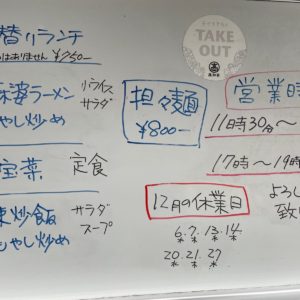 替りランチ
はありません ¥750-
婆ラーメン ライス
サラダ
やし炒め
宝菜 定食
炒飯 サラダ
スープ
やし炒め
担々麺
¥800-
TAKE
OUT
営業時
11時30分〜
17時〜19時
12月の休業日
6.7.13.14.
木
20.21.27
よろし
致